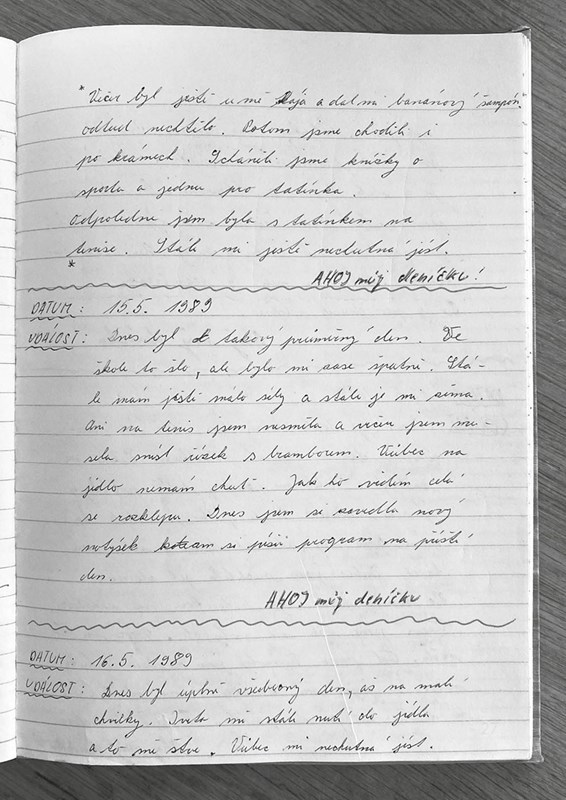 *Večer byl ještě u mě Kája a dal mi banánový šampón*
odtud nechtělo. Potom jsme chodili i
po krámech. Scháněli jsme knížky o
sportu a jednu pro tatínka.
Odpoledne jsem byla s tatínkem na
tenise. Stále mi ještě nechutná jíst.
*
AHOJ můj deníčku!
DATUM: 15.5. 1989
UDÁLOST: Dnes byl takový průměrný den. Ve
škole to šlo, ale bylo mi zase špatně. Stá-
le mám ještě málo síly a stále je mi zima.
Ani na tenis jsem nesměla a večer jsem mu-
sela sníst řízek s bramborem. Vůbec na
jídlo nemám chuť. Jak ho vidím celá
se rozklepu. Dnes jsem si zavedla nový
notýsek kam si píšu program na příští
den.
AHOJ můj deníčku
DATUM: 16.5. 1989
UDÁLOST: Dnes byl úplně všeobecný den, až na malé
chvilky. Iveta mi stále nutí do jídla
a to mě štve. Vůbec mi nechutná jíst.